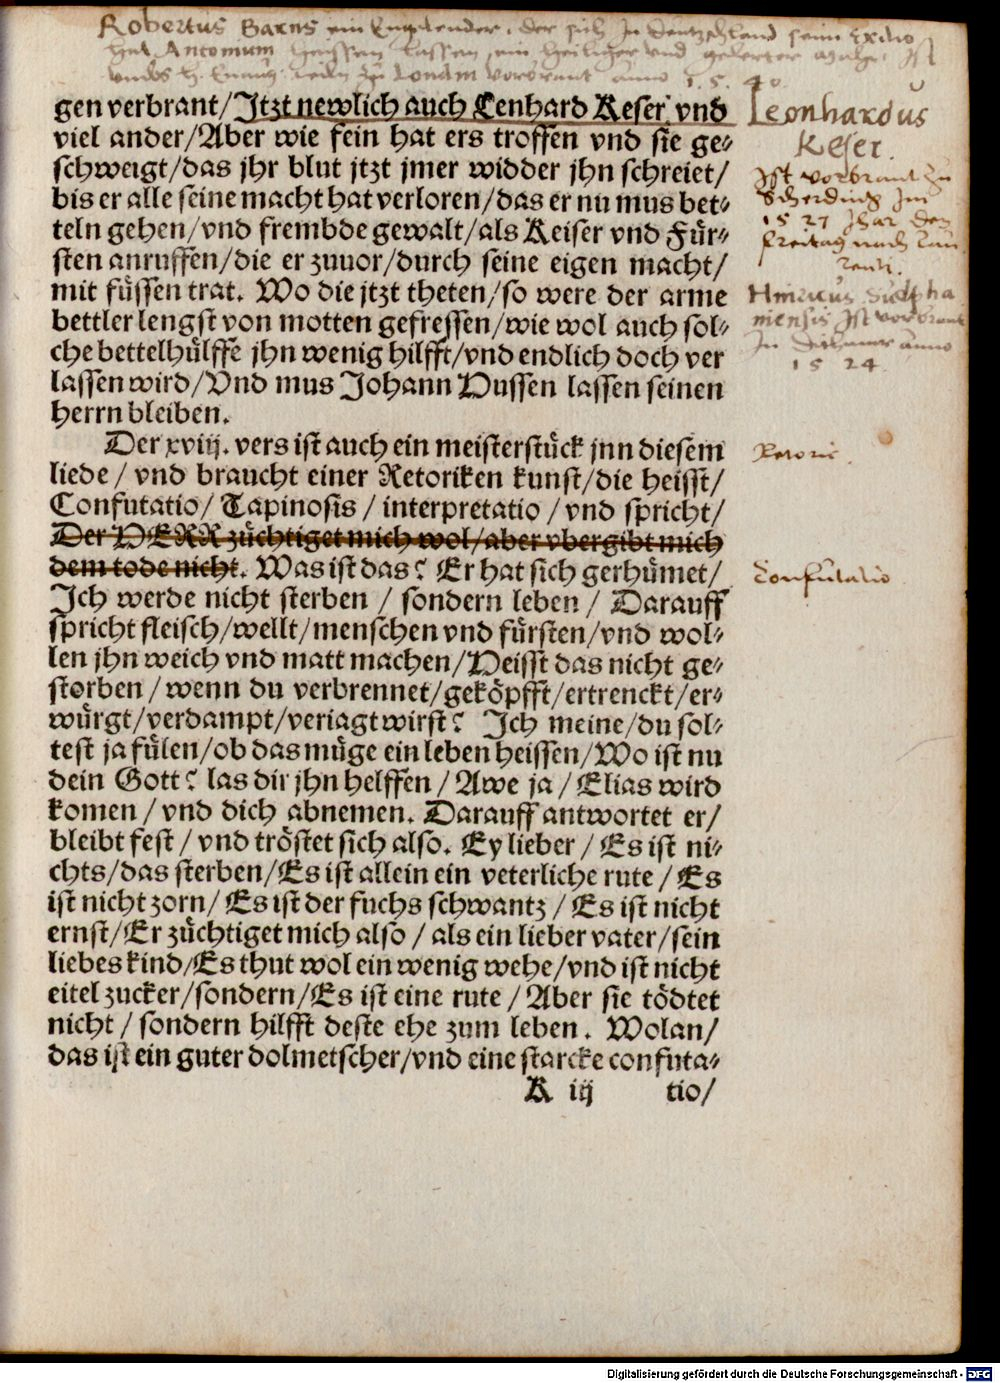 Robertus Barns ein Engelender, der sich in deutzschland seim Exilio
hat Antonium heissen lassen, ein heiliger und gelerter man, Ist
umbs h. Euang: willen zu Londam vorbrant anno 1540.
gen verbrant/Jtzt newlich auch Lenhard Keser vnd
viel ander/Aber wie fein hat ers troffen vnd sie ge⸗
schweigt/das jhr blut jtzt jmer widder jhn schreiet/
bis er alle seine macht hat verloren/das er nu mus bet⸗
teln gehen/vnd frembde gewalt/als Keiser vnd Für⸗
sten anruffen/die er zuuor/durch seine eigen macht/
mit füssen trat. Wo die jtzt theten/so were der arme
bettler lengst von motten gefressen/wie wol auch sol⸗
che bettelhülffe jhn wenig hilfft/vnd endlich doch ver
lassen wird/Vnd mus Johann Hussen lassen seinen
herrn bleiben.
Der xviij. vers ist auch ein meisterstück jnn diesem
liede / vnd braucht einer Retoriken kunst/die heisst/
Confutatio/ Tapinosis / interpretatio / vnd spricht/
Der HERR züchtiget mich wol/aber vbergibt mich
dem tode nicht. Was ist das? Er hat sich gerhümet/
Ich werde nicht sterben / sondern leben / Darauff
spricht fleisch/wellt/menschen vnd fürsten/vnd wol⸗
len jhn weich vnd matt machen/Heisst das nicht ge⸗
storben / wenn du verbrennet/geköpfft/ertrenckt/er⸗
würgt/verdampt/veriagt wirst? Ich meine/du sol⸗
test ja fülen/ob das müge ein leben heissen/Wo ist nu
dein Gott? las dir jhn helffen / Awe ja / Elias wird
komen / vnd dich abnemen. Darauff antwortet er/
bleibt fest / vnd tröstet sich also. Ey lieber / Es ist ni⸗
chts/das sterben/Es ist allein ein veterliche rute / Es
ist nicht zorn/ Es ist der fuchs schwantz / Es ist nicht
ernst/Er züchtiget mich also / als ein lieber vater/sein
liebes kind/Es thut wol ein wenig wehe/vnd ist nicht
eitel zucker/sondern/Es ist eine rute / Aber sie tödtet
nicht / sondern hilfft deste ehe zum leben. Wolan/
das ist ein guter dolmetscher/vnd eine starcke confuta⸗
K iij tio/
Leonhardus
Keser.
Ist vorbrant zu
Scherding Im
1527 Jhar den
freitag nach Lau
renti.
Hinricus Sutpha
niensis Ist vorbrant
In Dithmar anno
1524
Retoric.
Confutatio
Digitalisierung gefördert durch die Deutsche Forschungsgemeinschaft - DFG